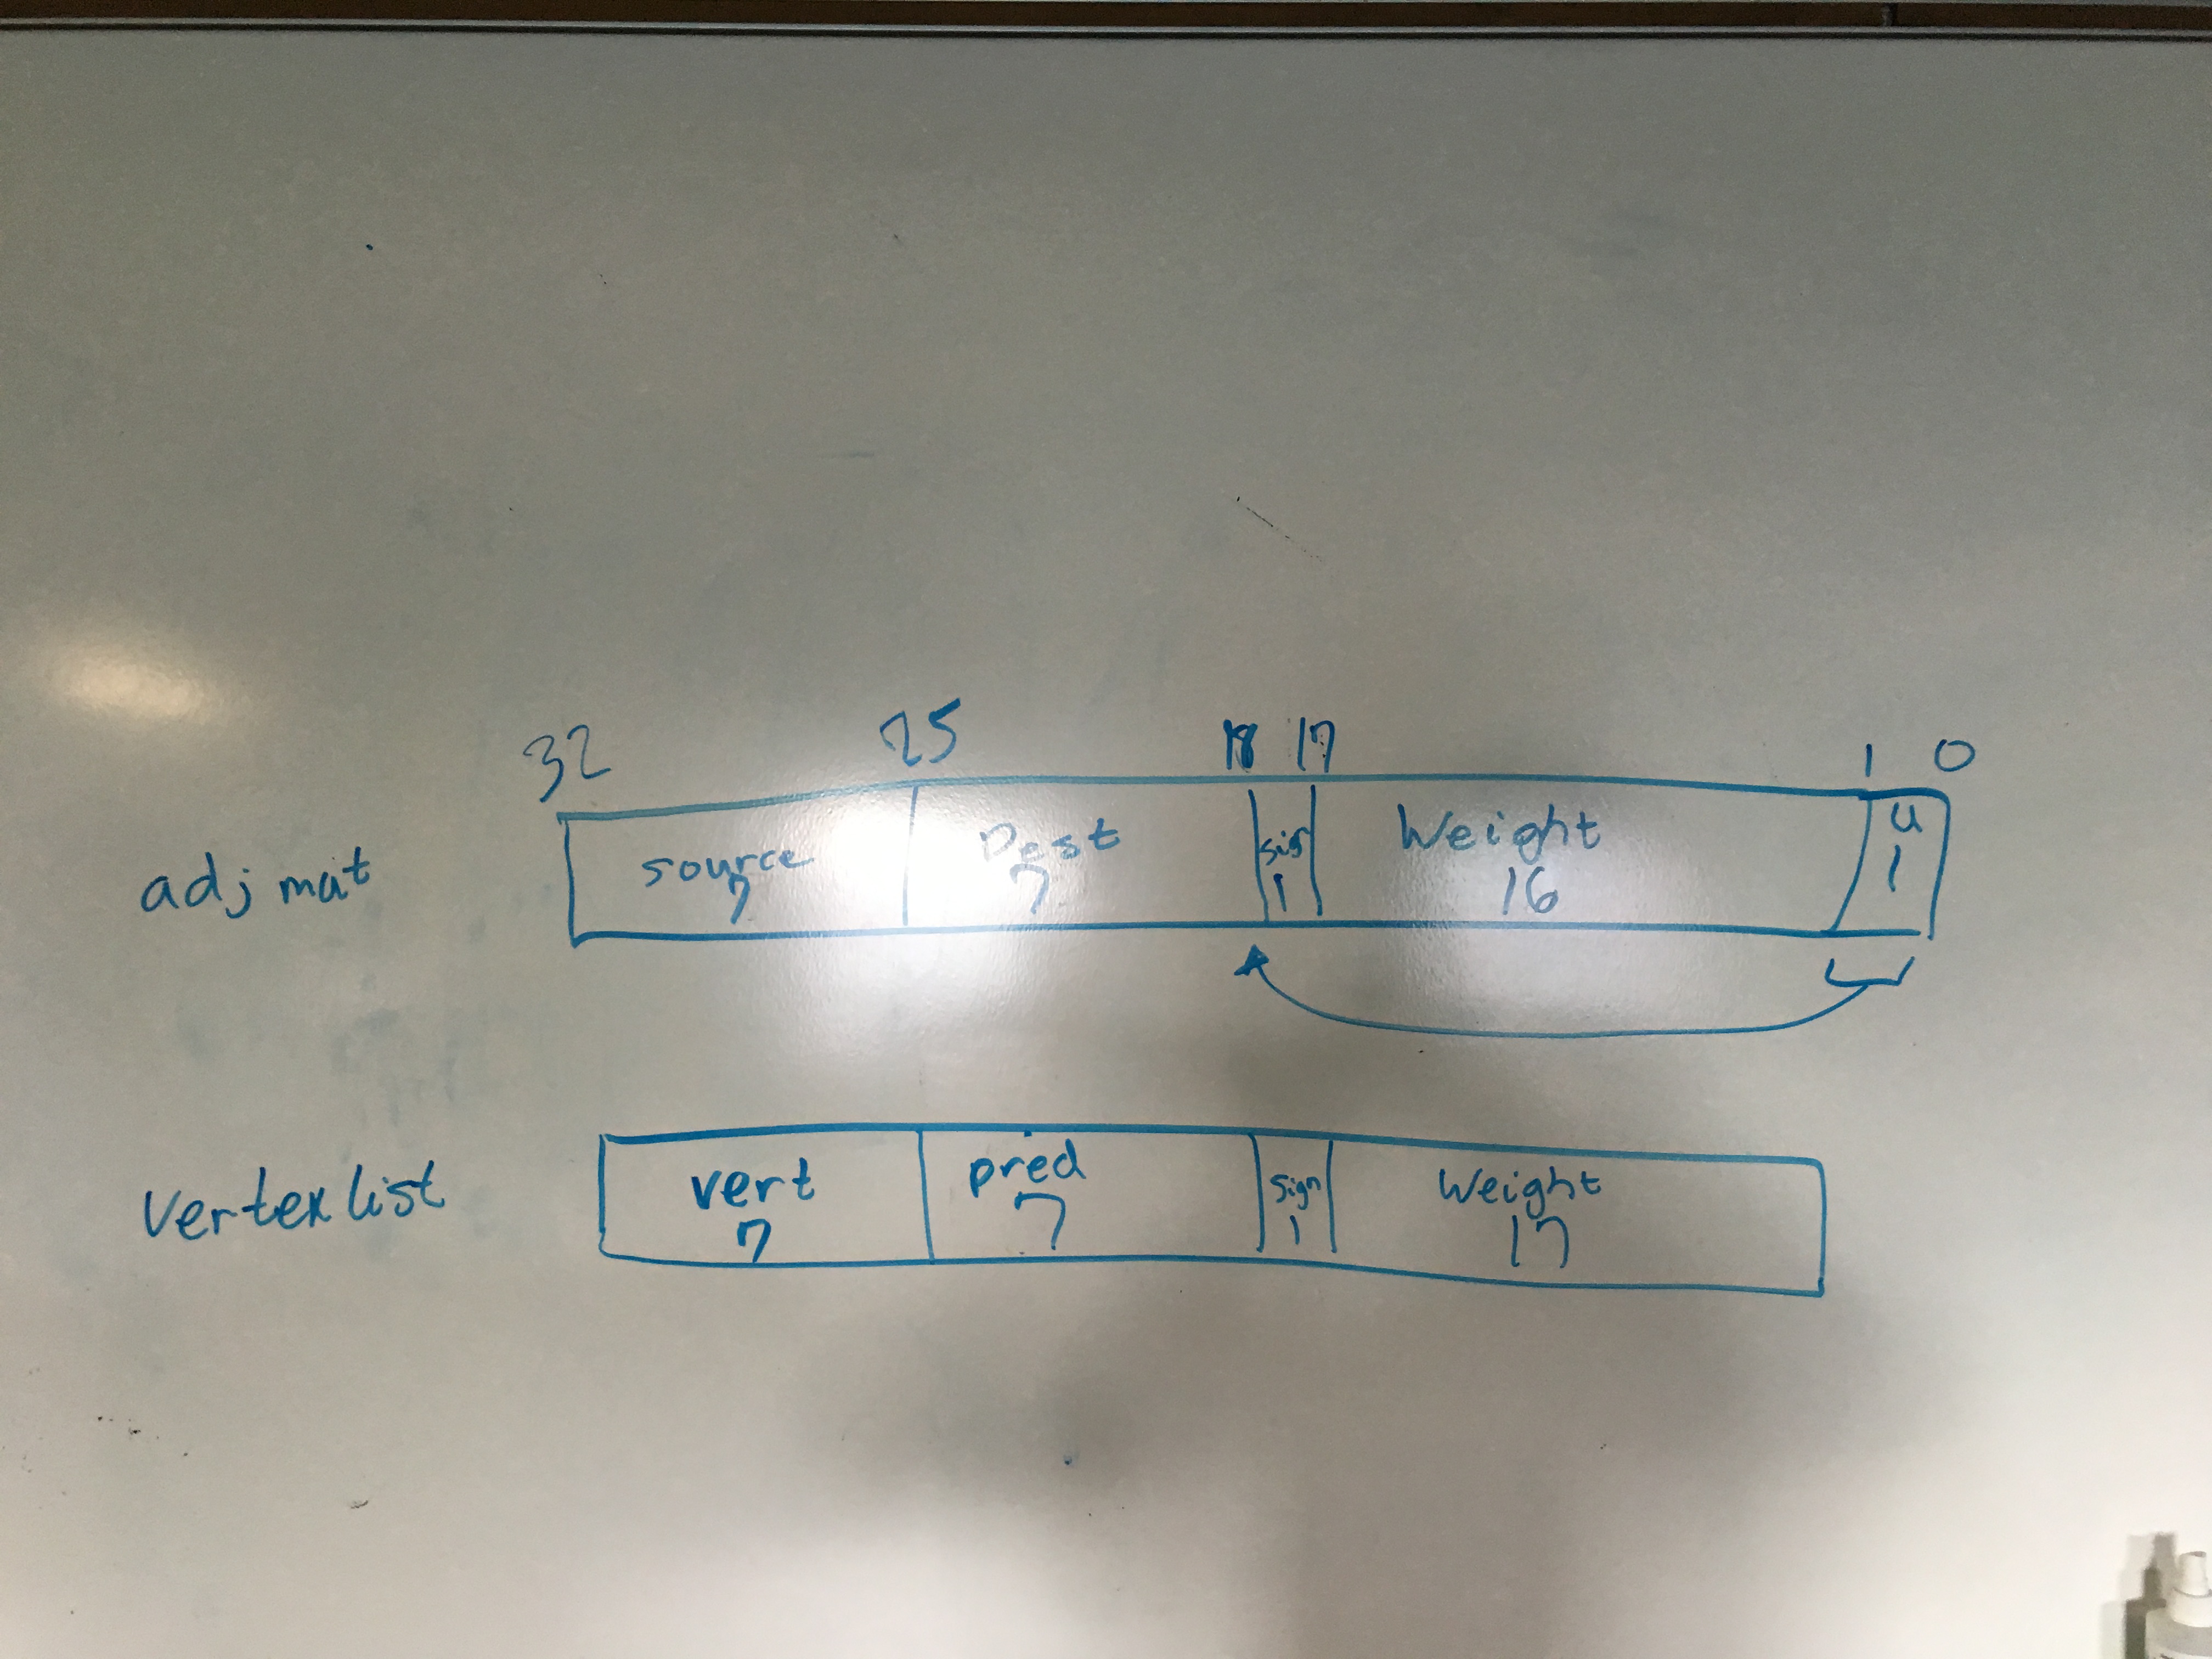 32 25 18 17 1 0
adj mat source Dest sign Weight u
7 7 1 16 1
Vertex list vert pred sign Weight
7 7 1 17